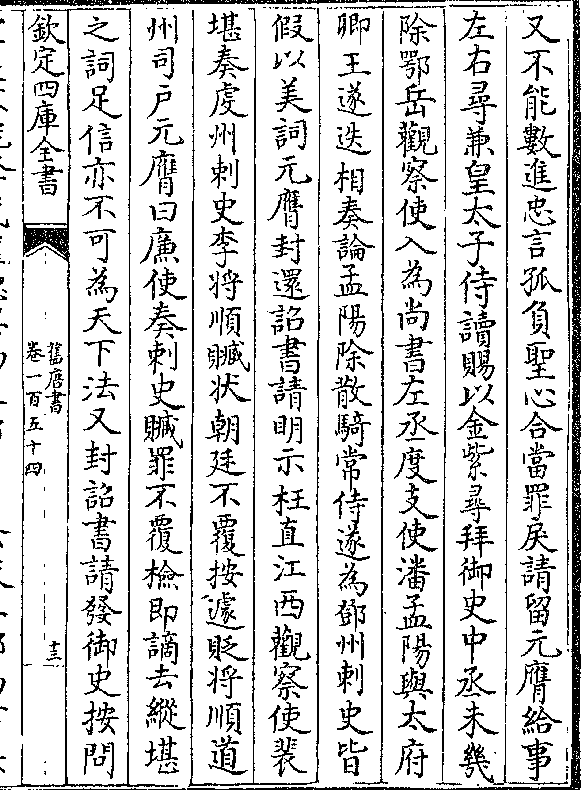 又不能數進忠言孤負聖心合當罪戾請留元膺給事
左右尋兼皇太子侍讀賜以金紫尋拜御史中丞未幾
除鄂岳觀察使入為尚書左丞度支使潘孟陽與太府
卿王遂迭相奏論孟陽除散騎常侍遂為鄧州刺史皆
假以美詞元膺封還詔書請明示枉直江西觀察使裴
堪奏虔州刺史李將順贓狀朝廷不覆按遽貶將順道
州司戶元膺曰廉使奏刺史贓罪不覆檢即謫去縱堪
之詞足信亦不可為天下法又封詔書請發御史按問
欽定四庫全書
舊唐書
卷一百五十四
十三